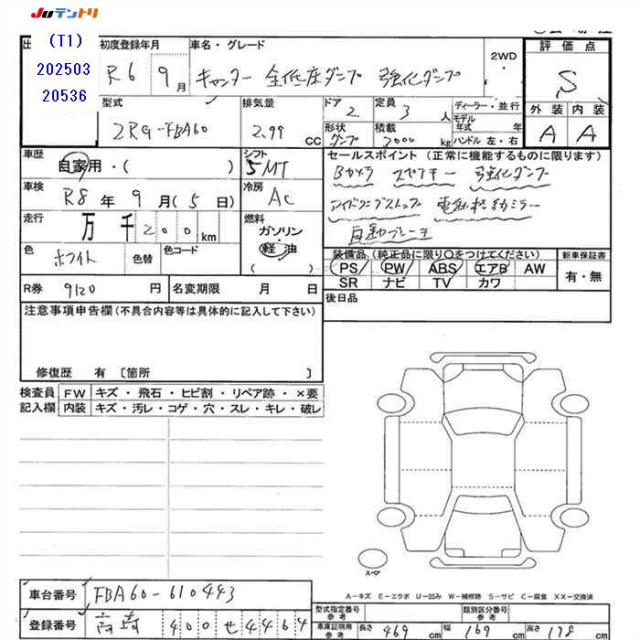 JUテントリ
(T1)
202503
20536
初度登録年月
R6 9月
車名・グレード
キャンター 全低床ダンプ 強化ダンプ
2WD
評価点
S
外装 内装
A A
型式
2RG-FBA60
排気量
2.99 CC
ドア
2
定員
3人
形状
ダンプ
積載
2000 kg
ディーラー・並行
モデル
年式 年
ハンドル 左・右
車歴
自家用・( )
シフト
5MT
セールスポイント (正常に機能するものに限ります)
Bカメラ スペアキー 強化ダンプ
アイドリングストップ 電動格納ミラー
自動ブレーキ
車検
R8年9月(5日)
冷房
AC
走行
万 千 200 km
燃料
ガソリン
軽油
( )
色
ホワイト
色替
色コード
装備品 (純正品に限り○をつけてください)
PS PW ABS エアB AW
SR ナビ TV カワ
新車保証書
有・無
R券 9120 円
名変期限 月 日
後日品
注意事項申告欄(不具合内容等は具体的に記入して下さい)
修復歴 有 〔箇所 〕
検査員
記入欄
FW キズ・飛石・ヒビ割・リペア跡・×要
内装 キズ・汚レ・コゲ・穴・スレ・キレ・破レ
スペア
A－キズ E－エクボ U－凹み W－補修跡 S－サビ C－腐食 XX－交換済
車台番号 FBA60-610493
登録番号 高崎 400せ4464
型式指定番号
参考
類別区分番号
参考
車庫証明用
参考
長さ 469 cm 幅 169 cm 高さ 198 cm